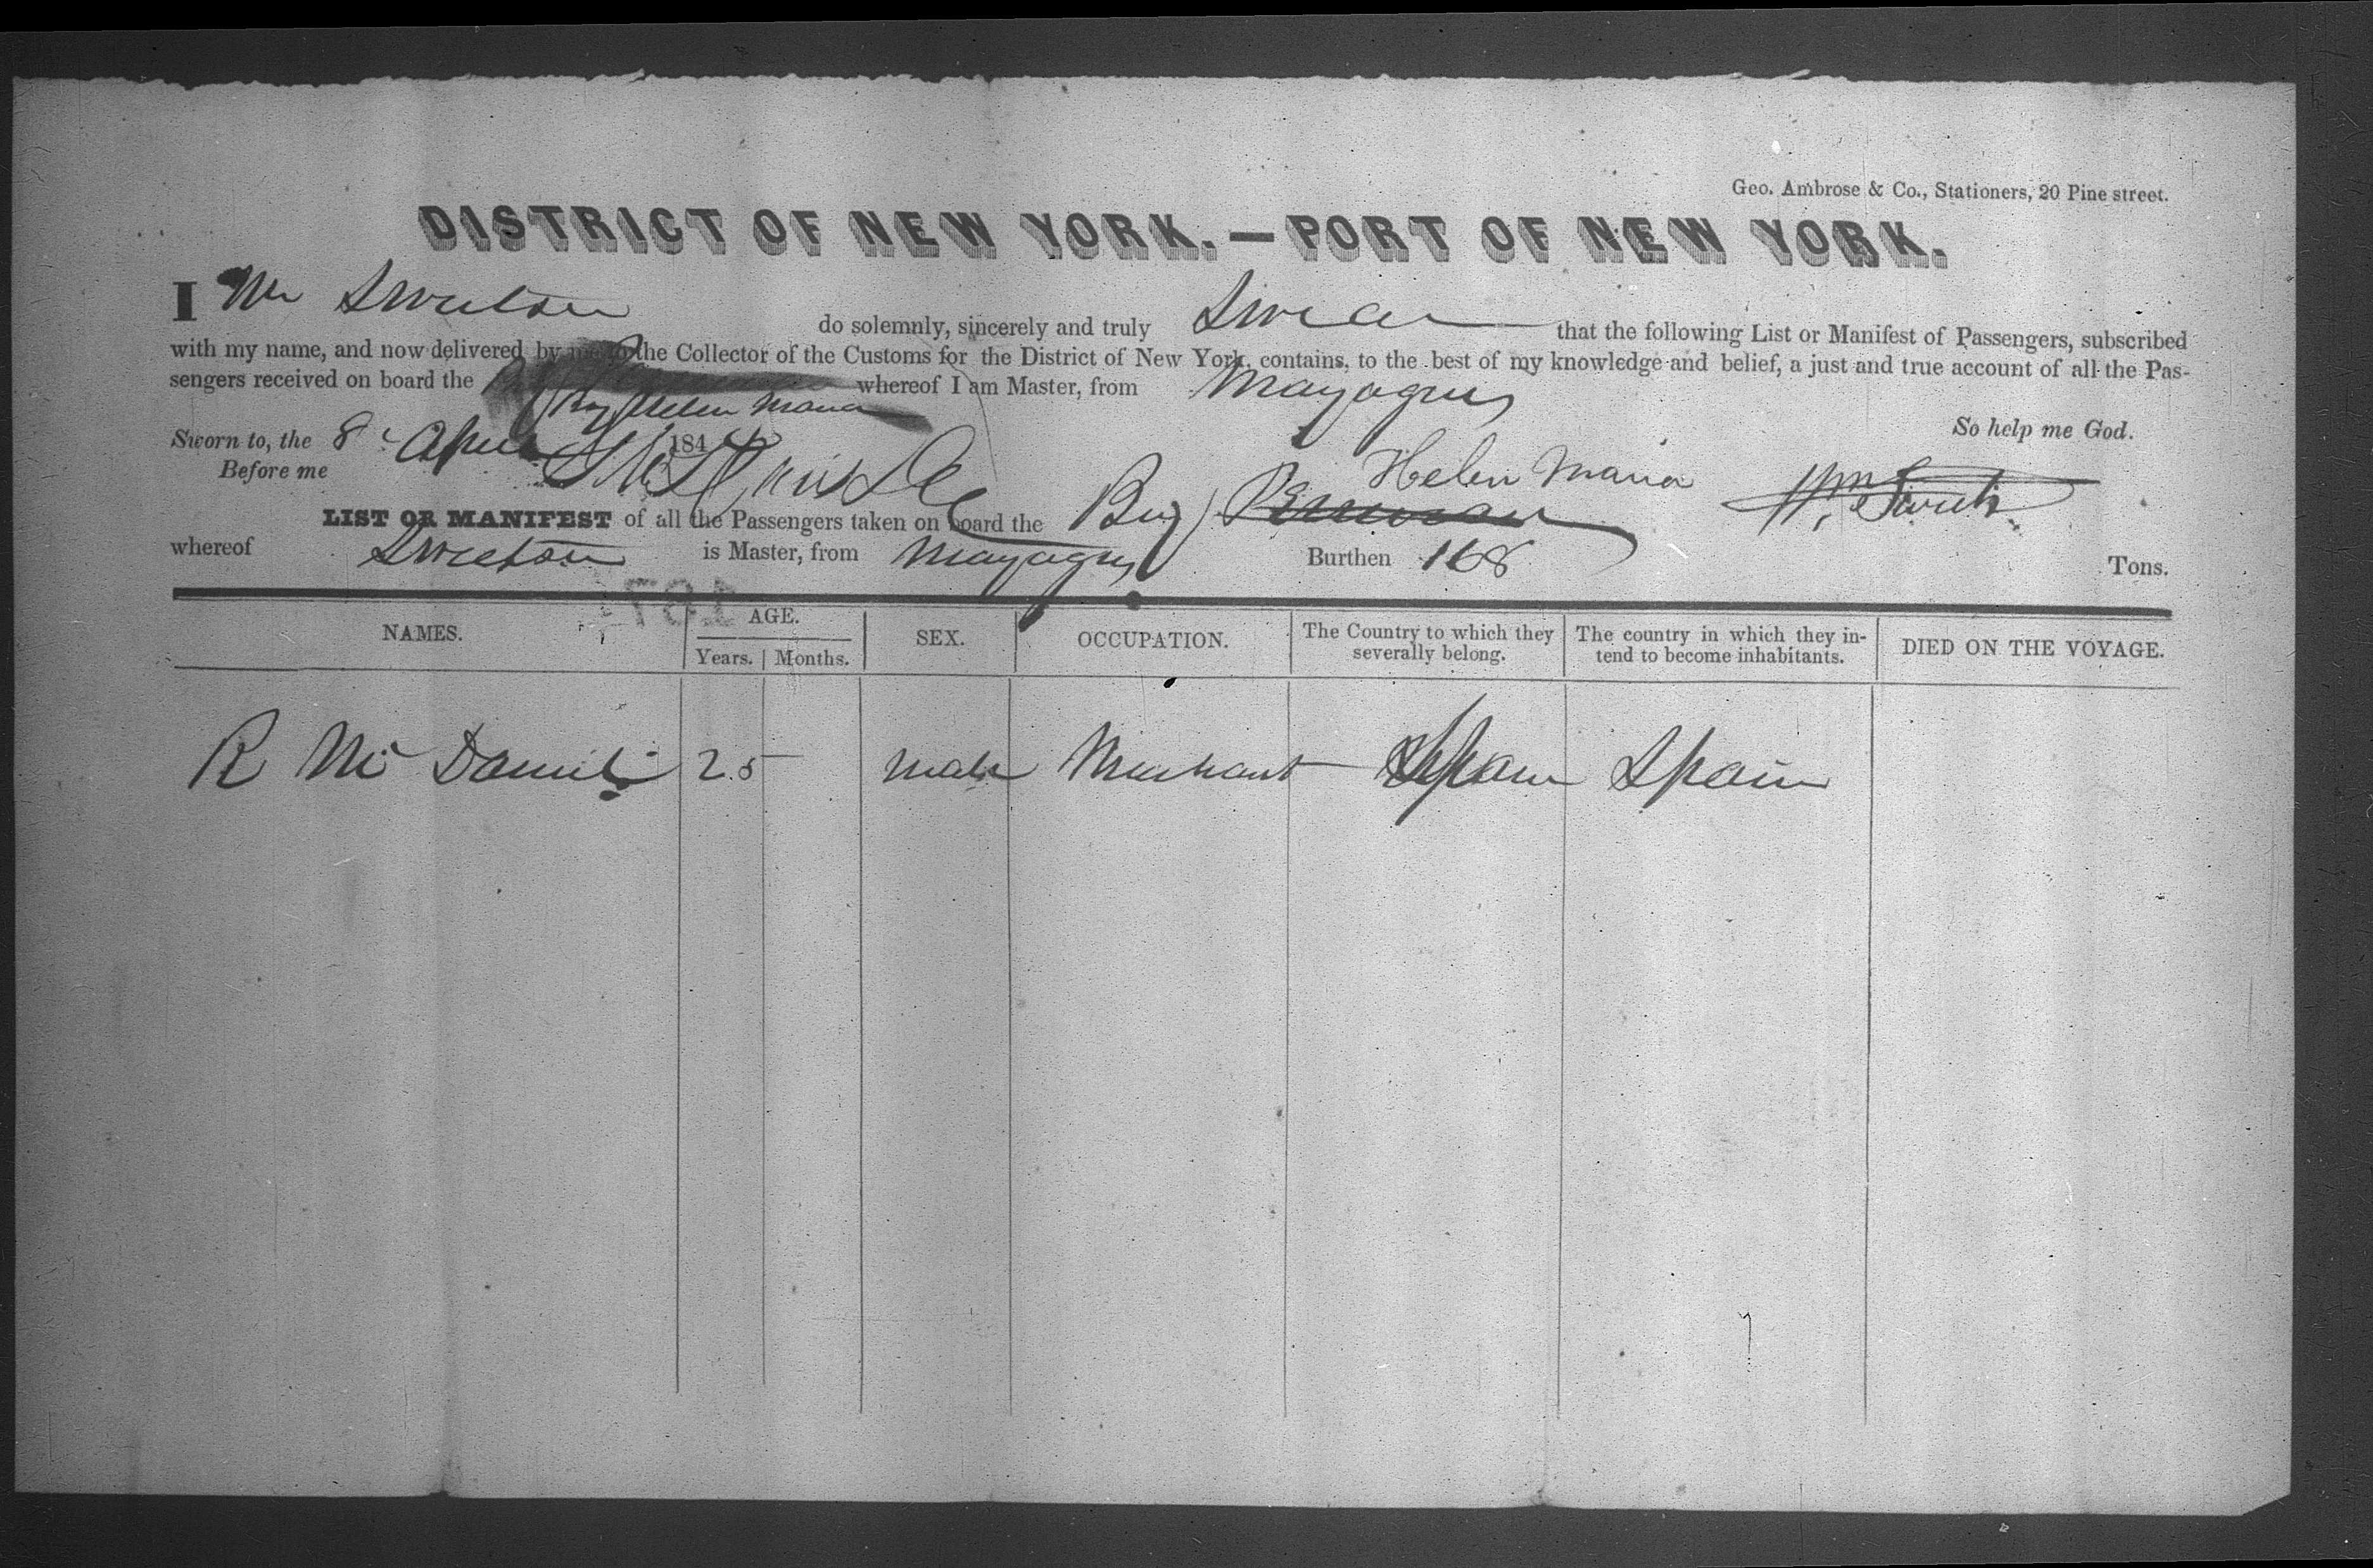 Geo. Ambrose & Co., Stationers, 20 Pine street.
DISTRICT OF NEW YORK.—PORT OF NEW YORK.
I Wm Sweetson do solemnly, sincerely and truly Swear that the following List or Manifest of Passengers, subscribed
with my name, and now delivered by me to the Collector of the Customs for the District of New York, contains, to the best of my knowledge and belief, a just and true account of all the Pas-
sengers received on board the whereof I am Master, from Mayagues
Brig Helen Maria
So help me God.
Sworn to, the 8 April 184
Before me
Helen Maria
LIST OR MANIFEST of all the Passengers taken on board the Brig
whereof Sweetson is Master, from Mayagues Burthen 168 Tons.
NAMES. AGE. SEX. OCCUPATION. The Country to which they severally belong. The country in which they in-tend to become inhabitants. DIED ON THE VOYAGE.
Years. Months.
R Mc Daniel 25 male Merchant Spain Spain